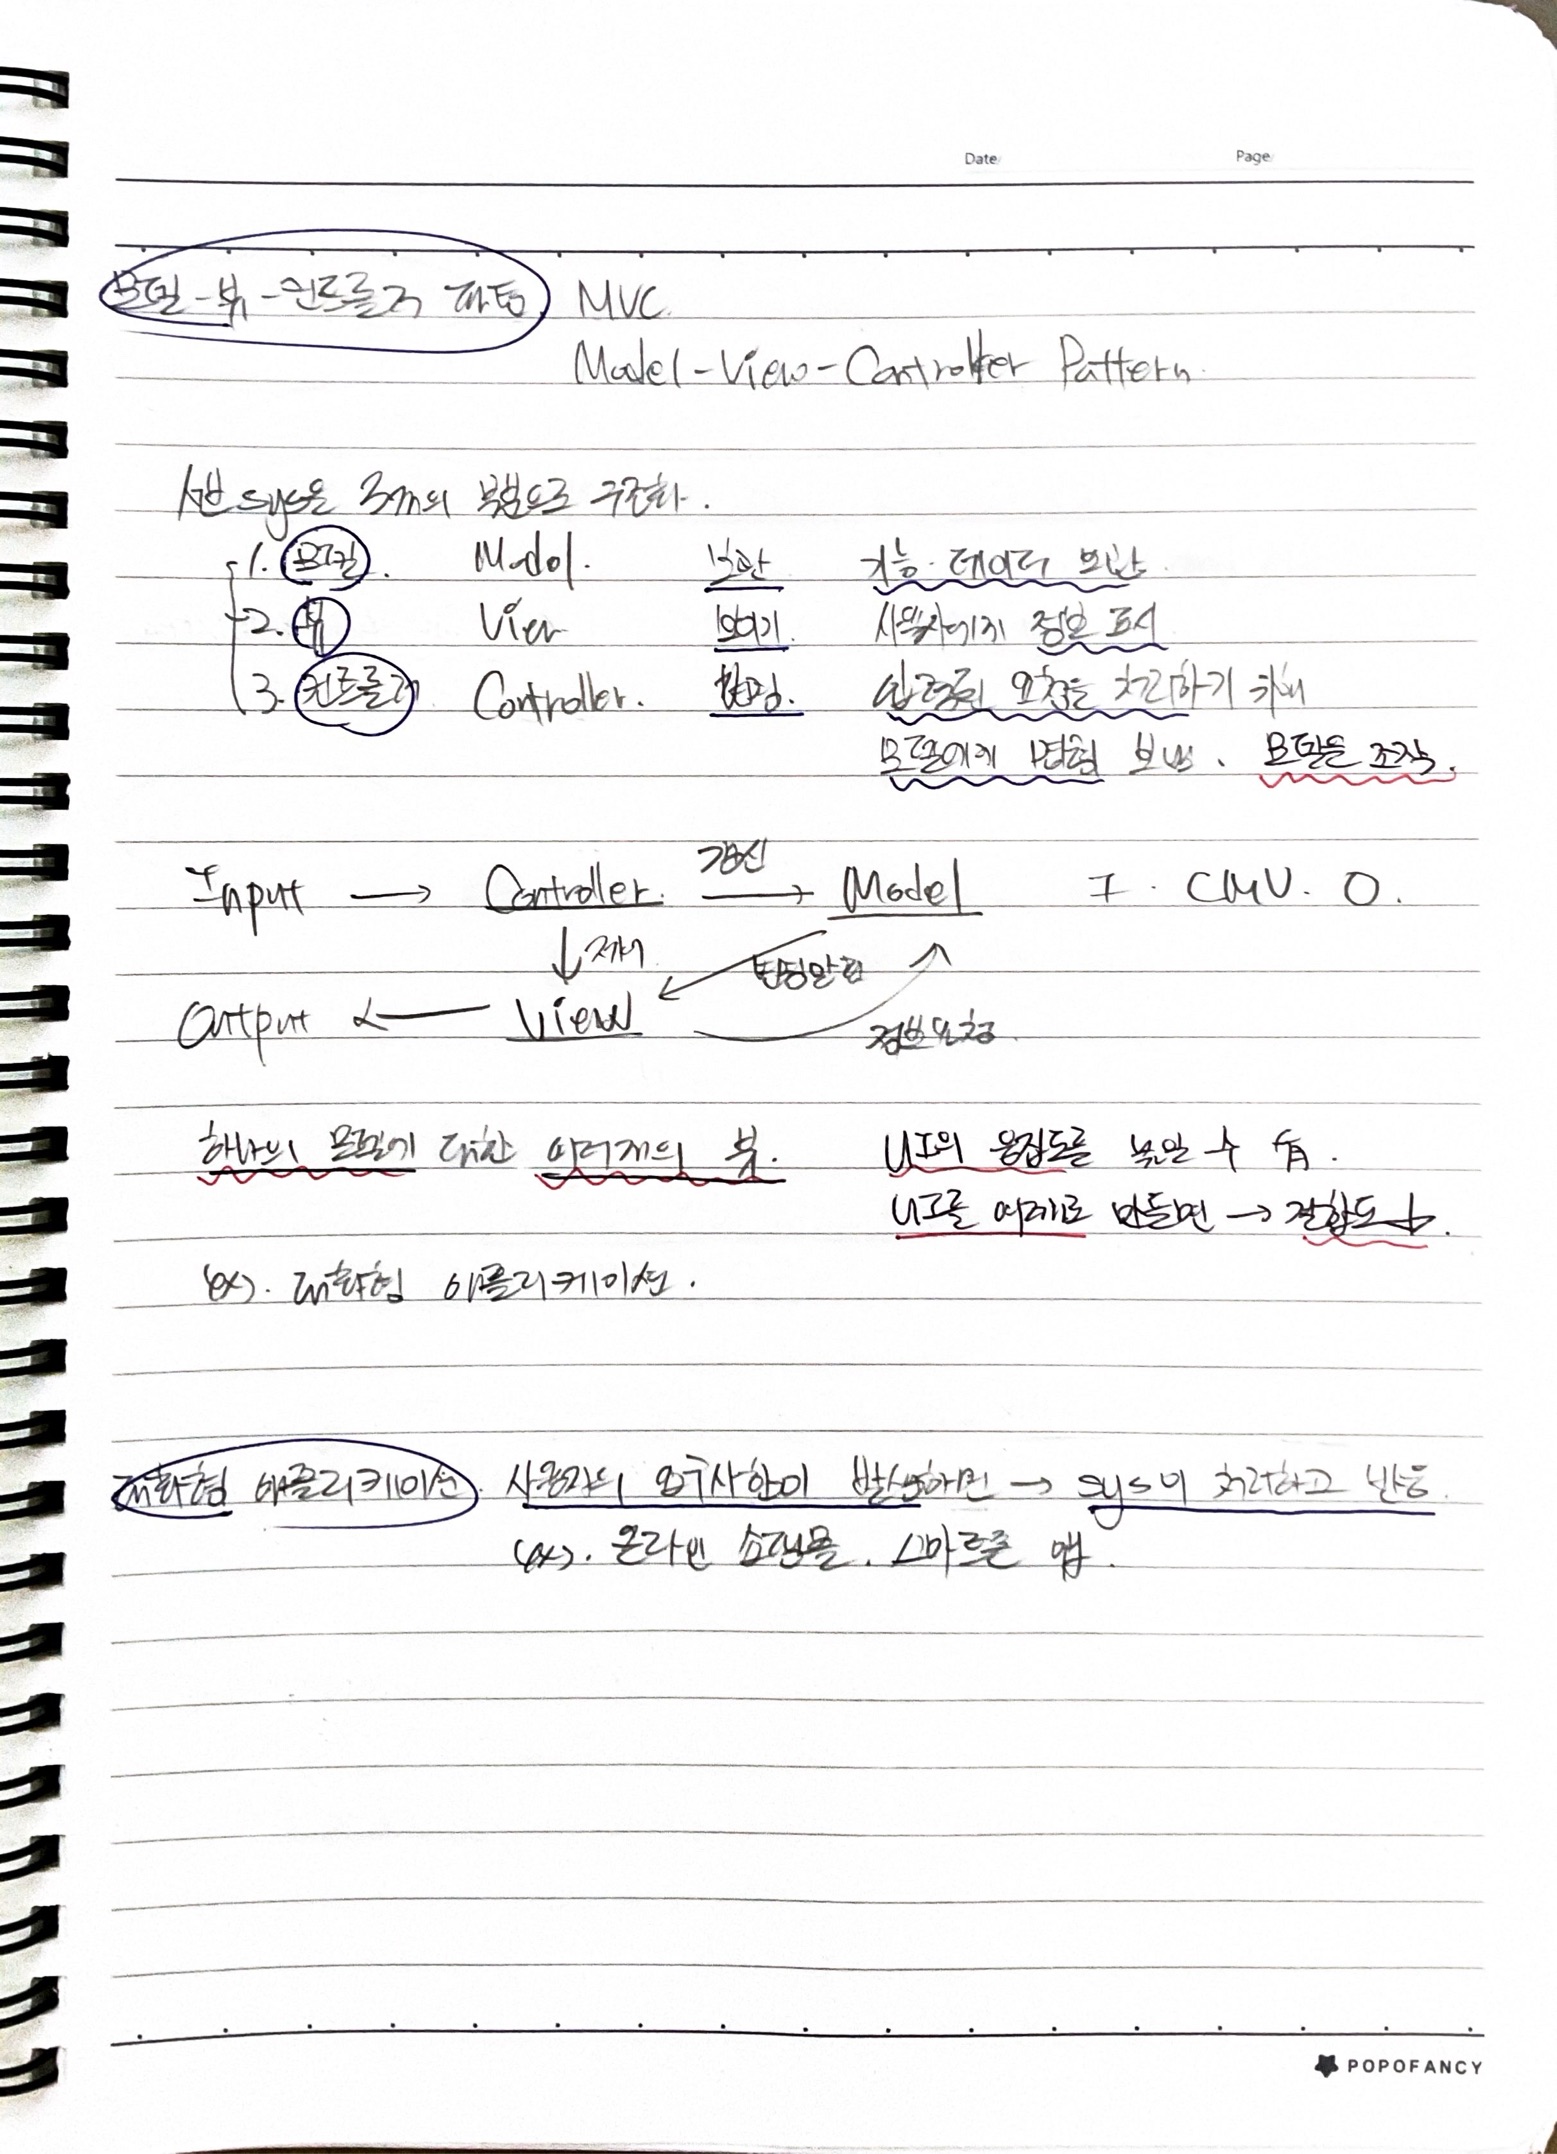 Date Page
모델-뷰-컨트롤러 패턴 MVC.
Model-View-Controller Pattern.
서브 sys을 3개의 부분으로 구조화.
1. 모델. Model. 보관 기능·데이터 보관.
2. 뷰 View 보이기. 사용자에게 정보 표시
3. 컨트롤러 Controller. 입력된 요청을 처리하기 위해
모델에게 명령 보냄. 모델을 조작.
갱신
Input → Controller. → Model I. CMV. O.
↓ 제어 변경알림
Output ← View 정보요청.
하나의 모델에 대한 여러개의 뷰. UI의 응집도를 높일 수 有.
UI를 여러개로 만들면 → 결합도↓.
ex). 대화형 애플리케이션.
대화형 애플리케이션. 사용자의 요구사항이 발생하면 → sys이 처리하고 반응.
ex). 온라인 쇼핑몰. 스마트폰 앱.
POPOFANCY